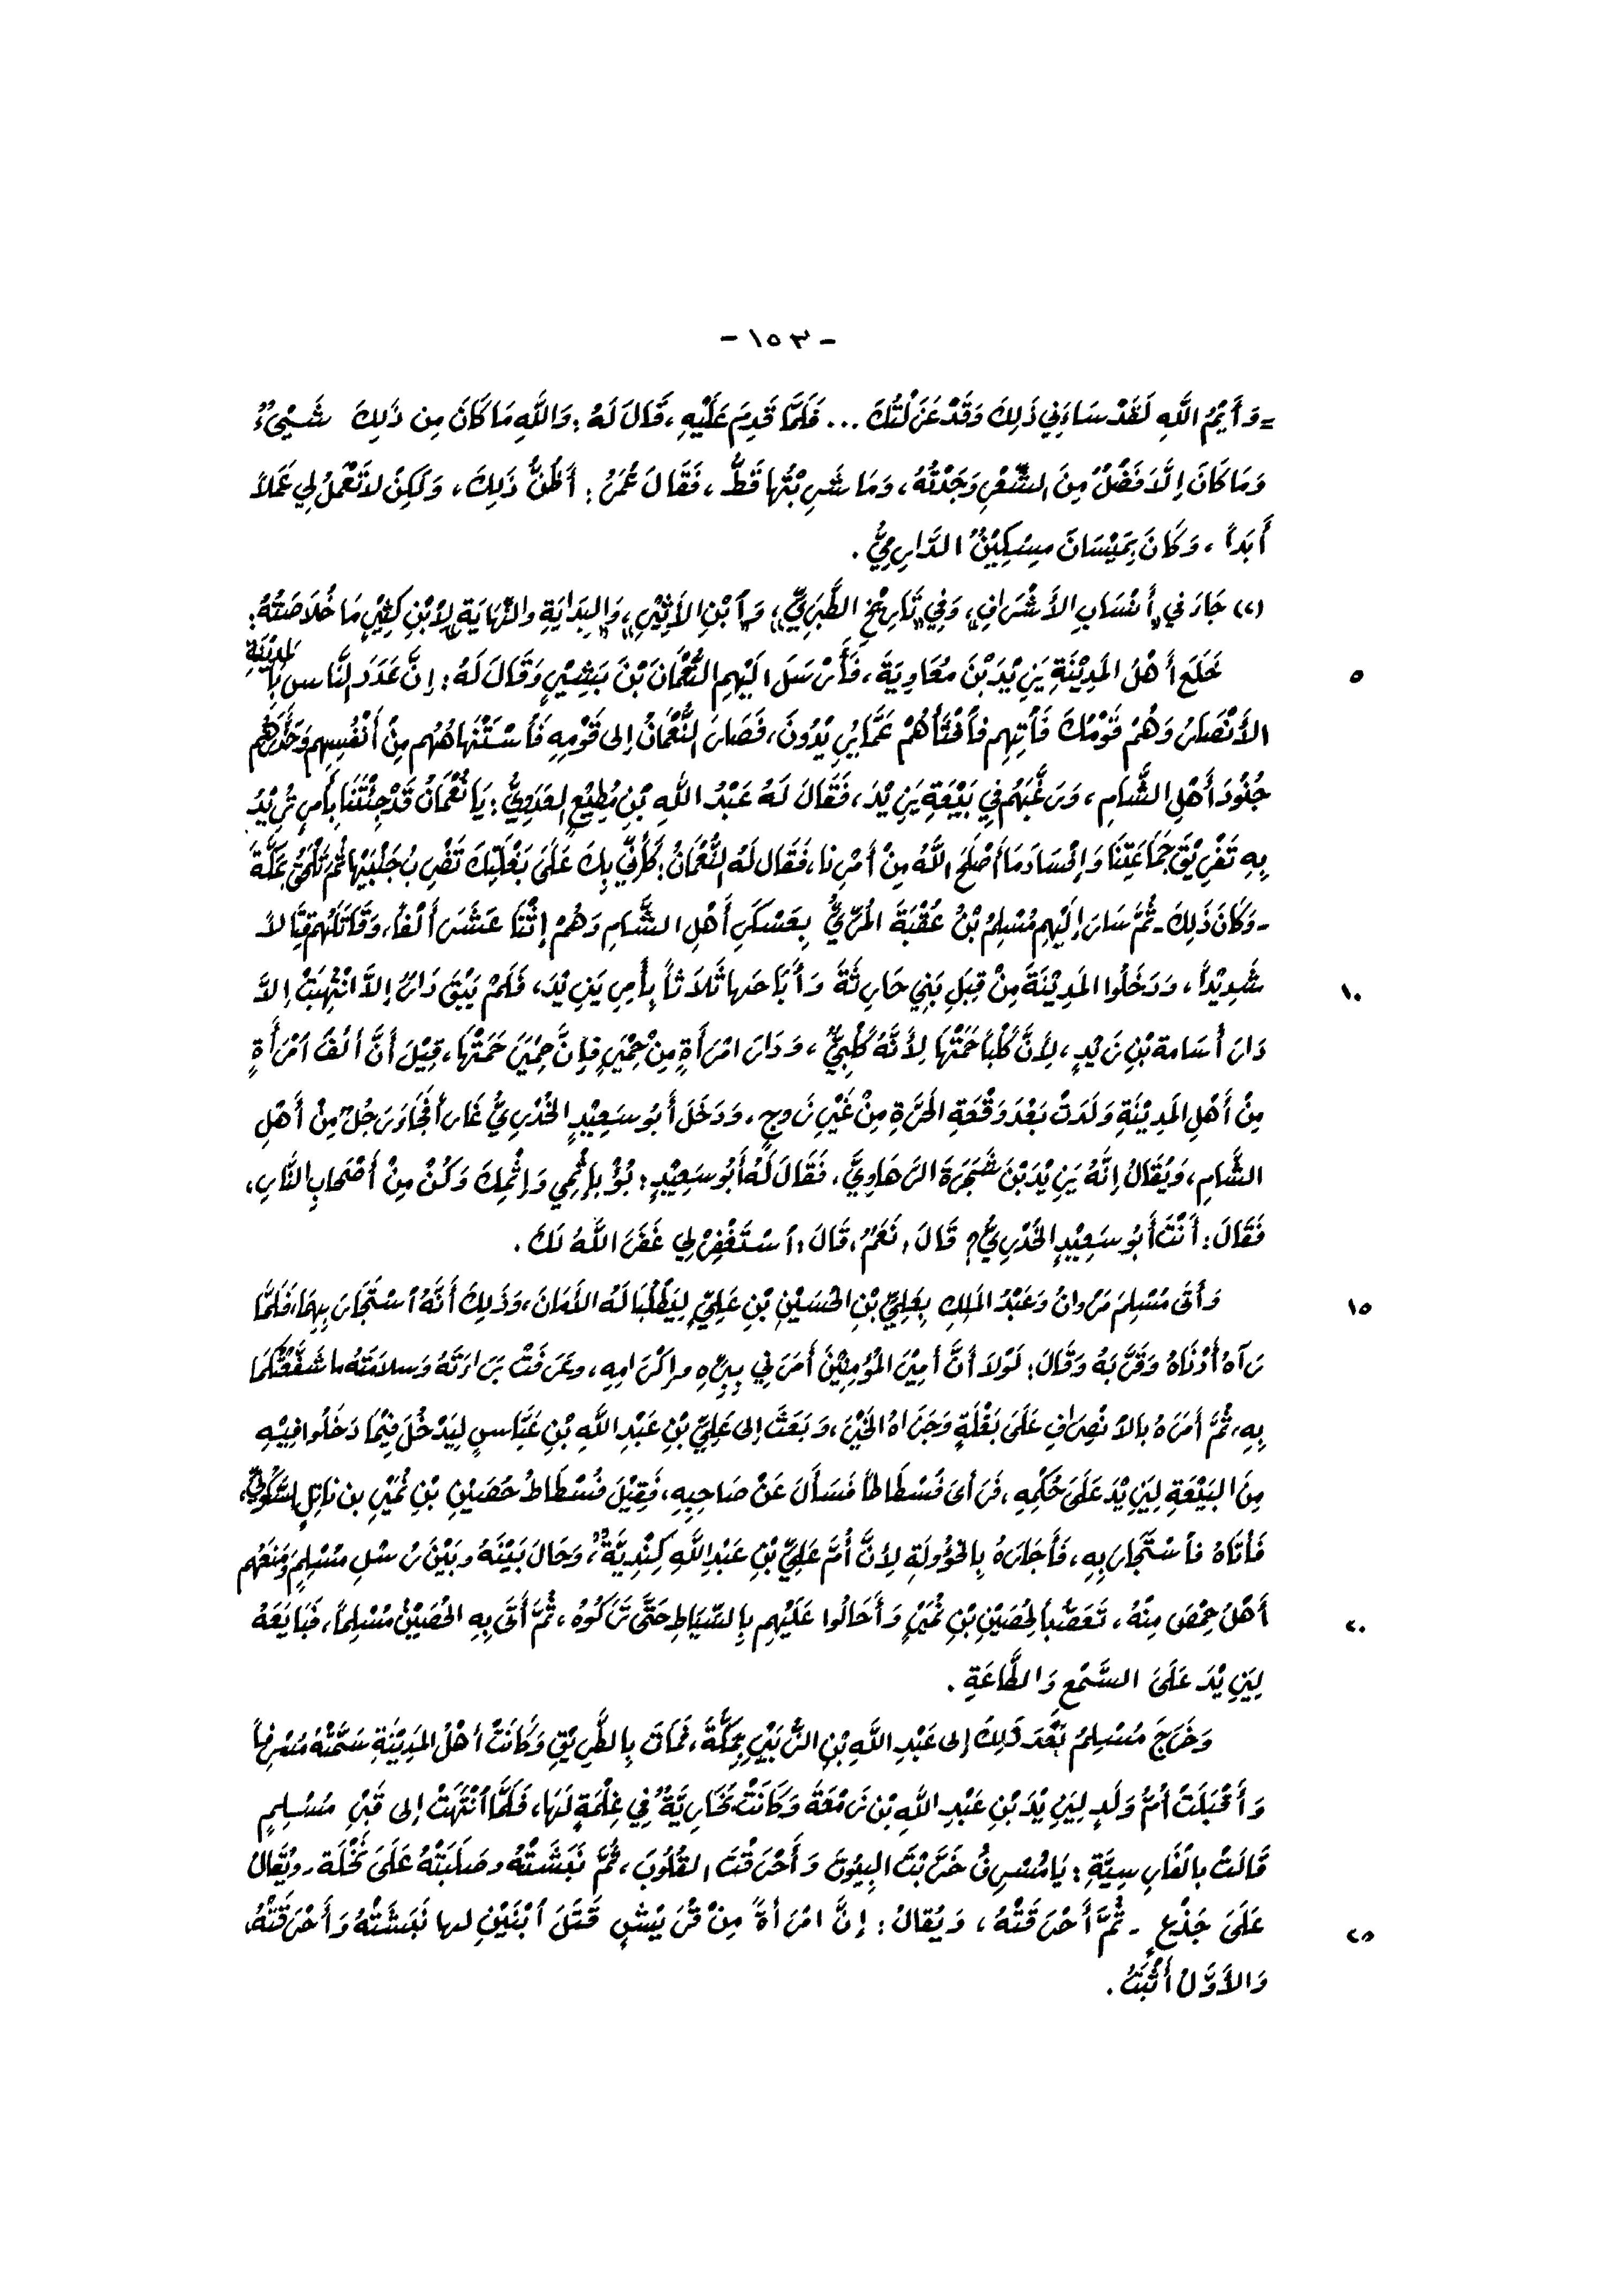 - ١٥٣ -
= وَأَيْمُ اللَّهِ لَقَدْ سَاءَنِي ذَلِكَ وَقَدْ عَزَلْتُكَ ... فَلَمَّا قَدِمَ عَلَيْهِ، قَالَ لَهُ: وَاللَّهِ مَا كَانَ مِن ذَلِكَ شَيْئٌ
وَمَا كَانَ إِلَّا فَضْلٌ مِنَ الشِّعْرِ وَجَدْتُهُ، وَمَا شَرِبْتُهَا قَطُّ، فَقَالَ عُمَرُ: أَظُنُّ ذَلِكَ، وَلَكِنْ لاَ تَعْمَلُ لِي عَمَلاً
أَبَداً، وَكَانَ بِمَيْسَانَ مِسْكِيْنٌ الدَّارِمِيُّ.
(٢) جَاءَ فِي «أَنْسَابِ الأَشْرَافِ» وَفِي «تَارِيْخِ الطَّبَرِيِّ» وَ«ابْنِ الأَثِيْرِ» وَ«البِدَايَةِ والنِّهَايَةِ» لِابْنِ كَثِيْرٍ مَا خُلاَصَتُهُ:
٥ خَلَعَ أَهْلُ المَدِيْنَةِ يَزِيْدَ بْنَ مُعَاوِيَةَ، فَأَرْسَلَ إِلَيْهِمِ النُّعْمَانَ بْنَ بَشِيْرٍ وَقَالَ لَهُ: إِنَّ عَدَدَ النَّاسِ بِالمَدِيْنَةِ
الأَنْصَارُ وَهُمْ قَوْمُكَ فَأْتِهِم فَافْثَأْهُمْ عَمَّا يُرِيْدُونَ، فَصَارَ النُّعْمَانُ إِلى قَوْمِهِ فَاسْتَنْهَاهُهُم مِنْ أَنْفُسِهِم وَحَذَّرَهُم
جُنُودَ أَهْلِ الشَّامِ، وَرَغَّبَهُم فِي بَيْعَةِ يَزِيْدَ، فَقَالَ لَهُ عَبْدُ اللَّهِ بْنِ مُطِيْعٍ العَدَوِيُّ: يَا نُعْمَانُ قَدْ جِئْتَنَا بِأَمْرٍ تُرِيْدُ
بِهِ تَفْرِيْقَ جَمَاعَتِنَا وَإِفْسَادَ مَا أَصْلَحَ اللَّهُ مِنْ أَمْرِنَا، فَقَالَ لَهُ النُّعْمَانُ: كَأَنِّي بِكَ عَلَى بَغْلَتِكَ تَضْرِبُ جَنْبَيْهَا ثُمَّ تَلْحَقُ بِمَكَّةَ
- وَكَانَ ذَلِكَ - ثُمَّ سَارَ إِلَيْهِم مُسْلِمُ بْنُ عُقْبَةَ المُرِّيُّ بِعَسْكَرِ أَهْلِ الشَّامِ وَهُمْ إِثْنَا عَشَرَ أَلْفاً، وَقَاتَلَهُم قِتَالاً
١٠ شَدِيْداً، وَدَخَلُوا المَدِيْنَةَ مِنْ قِبَلِ بَنِي حَارِثَةَ وَأَبَاحَهَا ثَلاَثاً بِأَمْرِ يَزِيْدَ، فَلَمْ يَبْقَ دَارٌ إِلاَّ انْتُهِبَتْ إِلاَّ
دَارَ أُسَامَةَ بْنِ زَيْدٍ، لِأَنَّ كَلْباً حَمَتْهَا لِأَنَّهُ كَلْبِيٌّ، وَدَارَ امْرَأَةٍ مِنْ حِمْيَرٍ فَإِنَّ حِمْيَرَ حَمَتْهَا، قِيْلَ أَنَّ أَلْفَ امْرَأَةٍ
مِنْ أَهْلِ المَدِيْنَةِ وَلَدَتْ بَعْدَ وَقْعَةِ الحَرَّةِ مِنْ غَيْرِ زَوجٍ، وَدَخَلَ أَبُو سَعِيْدٍ الخُدْرِيُّ غَاراً فَجَاءَ رَجُلٌ مِنْ أَهْلِ
الشَّامِ، وَيُقَالُ إِنَّهُ يَزِيْدَ بْنَ شَجَرَةَ الرَّهَاوِيَّ، فَقَالَ لَهُ أَبُو سَعِيْدٍ: بُؤْ بِإِثْمِي وَإِثْمِكَ وَكُنْ مِنْ أَصْحَابِ النَّارِ،
فَقَالَ: أَنْتَ أَبُو سَعِيْدٍ الخُدْرِيُّ؟ قَالَ، نَعَمْ، قَالَ، اسْتَغْفِرْ لِي غَفَرَ اللَّهُ لَكَ.
١٥ وَأَتَى مُسْلِمَ مَرْوانُ وَعَبْدُ المَلِكِ بِعَلِيِّ بْنِ الحُسَيْنِ بْنِ عَلِيٍّ لِيَطْلُبَا لَهُ الأَمَانَ، وَذَلِكَ أَنَّهُ اسْتَجَارَ بِهِمَا، فَلَمَّا
رَآهُ أَدْنَاهُ وَقَرَّبَهُ وَقَالَ: لَوْلاَ أَنَّ أَمِيْرَ المُؤْمِنِيْنَ أَمَرَنِي بِبِرِّهِ وإِكْرَامِهِ، وعَرَفْتُ بَرَاءَتَهُ وَسَلاَمَتَهُ ما شَفَّعْتُكُمَا
بِهِ، ثُمَّ أَمَرَهُ بِالاِنْصِرَافِ عَلَى بَغْلَةٍ وَجَزَاهُ الخَيْرَ، وَبَعَثَ إِلى عَلِيِّ بْنِ عَبْدِ اللَّهِ بْنِ عَبَّاسٍ لِيَدْخُلَ فِيْمَا دَخَلُوا فِيْهِ
مِنَ البَيْعَةِ لِيَزِيْدَ عَلَى حُكْمِهِ، فَرَأى فُسْطَاطاً فَسَأَلَ عَنْ صَاحِبِهِ، فَقِيْلَ فُسْطَاطُ حُصَيْنِ بْنِ نُمَيْرِ بن نَاتِلٍ السَّكُونِيِّ،
فَأَتَاهُ فَاسْتَجَارَ بِهِ، فَأَجَارَهُ بِالخُؤُولَةِ لِأَنَّ أُمَّ عَلِيِّ بْنِ عَبْدِ اللَّهِ كِنْدِيَّةٌ، وَحَالَ بَيْنَهُ وبَيْنَ رُسُلِ مُسْلِمٍ وَمَنَعَهُم
٢٠ أَهْلُ حِمْصَ مِنْهُ، تَعَصُّباً لِحُصَيْنِ بْنِ نُمَيْرٍ وَأَحَالُوا عَلَيْهِم بِالسِّيَاطِ حَتَّى تَرَكُوهُ، ثُمَّ أَتَى بِهِ الحُصَيْنُ مُسْلِماً، فَبَايَعَهُ
لِيَزِيْدَ عَلَى السَّمْعِ وَالطَّاعَةِ.
وَخَرَجَ مُسْلِمٌ بَعْدَ ذَلِكَ إِلى عَبْدِ اللَّهِ بْنِ الزُّبَيْرِ بِمَكَّةَ، فَمَاتَ بِالطَّرِيْقِ وَكَانَتْ أَهْلُ المَدِيْنَةِ سَمَّتْهُ مُسْرِفاً
وَأَقْبَلَتْ أُمُّ وَلَدٍ لِيَزِيْدَ بْنِ عَبْدِ اللَّهِ بْنِ زَمْعَةَ وَكَانَتْ بُخَارِيَّةً فِي غِلْمَةٍ لَهَا، فَلَمَّا انْتَهَتْ إِلى قَبْرِ مُسْلِمٍ
قَالَتْ بِالفَارِسِيَّةِ: يَا مُسْرِفُ خَرَّبْتَ البِيُوتَ وَأَحْرَقْتَ القُلُوبَ، ثُمَّ نَبَشَتْهُ وصَلَبَتْهُ عَلَى نَخْلَة - ويُقَالُ
٢٥ عَلَى جَذْعٍ - ثُمَّ أَحْرَقَتْهُ، وَيُقَالُ: إِنَّ امْرَأةً مِنْ قُرَيْشٍ قَتَلَ ابْنَيْنِ لها نَبَشَتْهُ وَأَحْرَقَتْهُ،
وَالأَوَّلُ أَثْبَتُ.